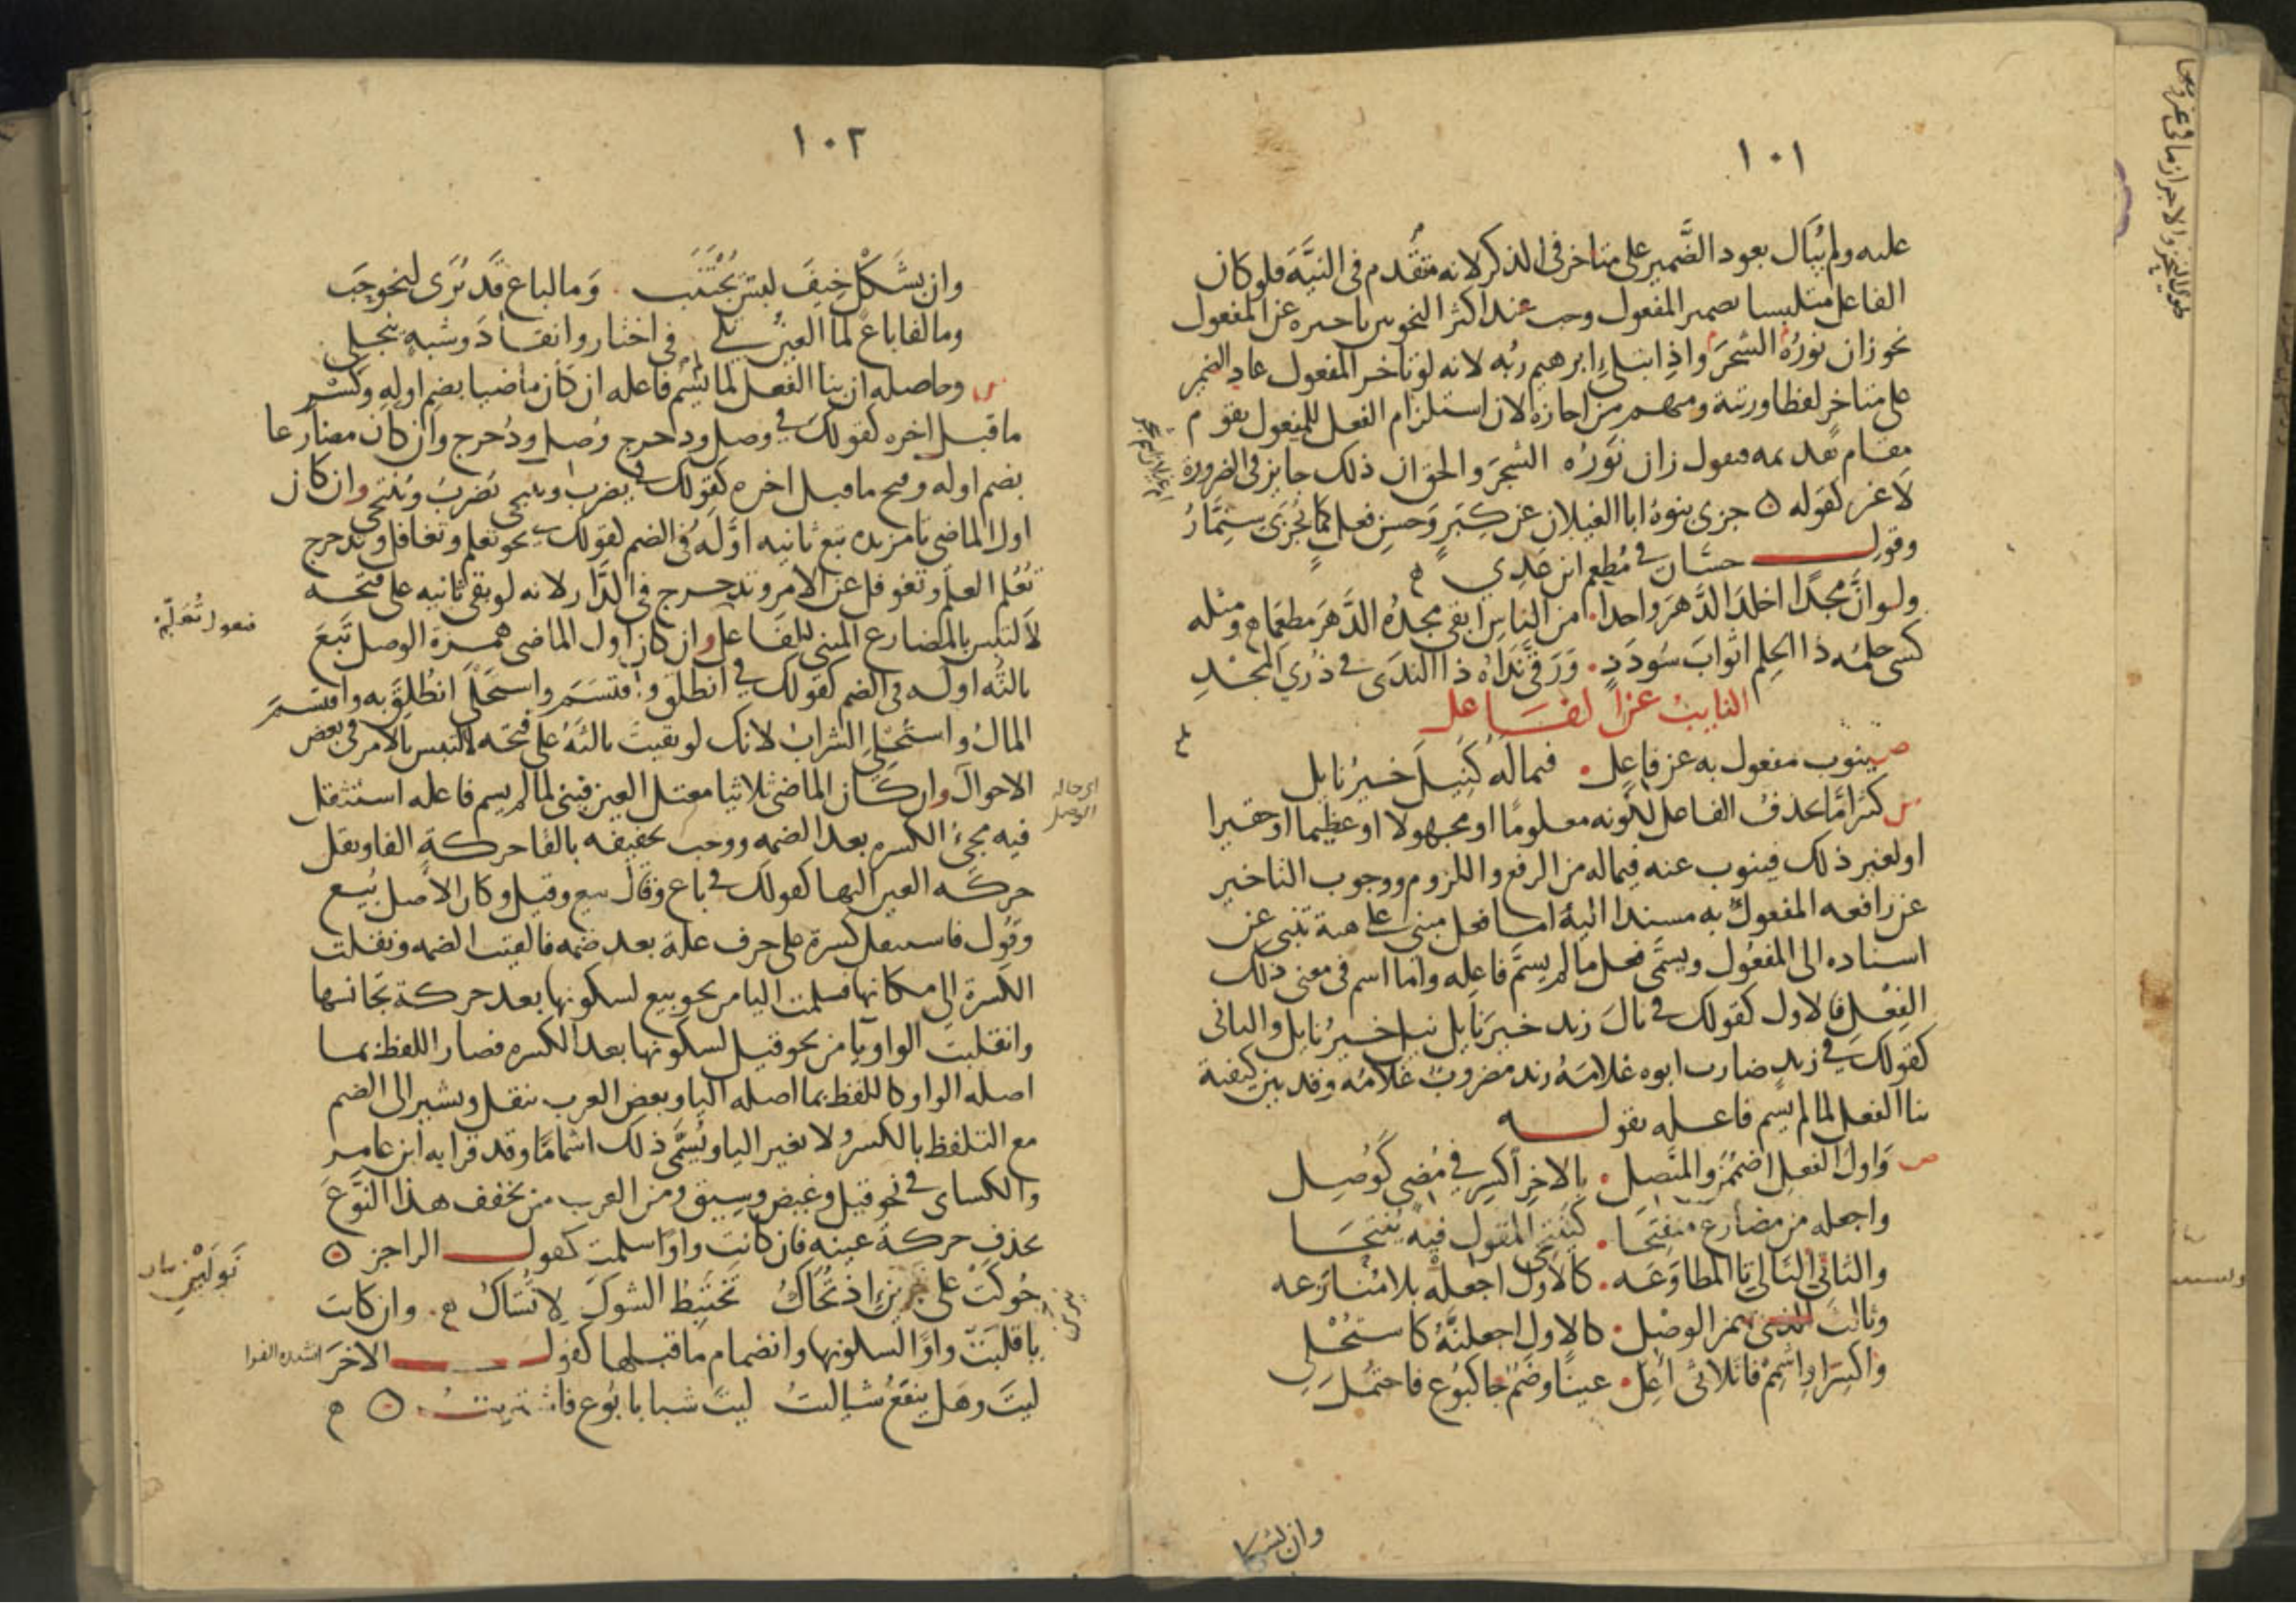 ١٠١
عليه ولم يبال بعود الضَّمير على متاخر في الذكر لانه متقدم في النيَّة فلو كان
الفاعل متلبسا بضمير المفعول وجب عند اكثر النحويين تاخيره عن المفعول
نحو زان نورُهُ الشجرَ واذ ابتلى ابرهيم ربُه لانه لو تاخر المفعول عاد الضمير
على متاخر لفظا ورتبة ومنهم من اجازه لان استلزام الفعل للمفعول يقوم
مقام تقديمه فيقول زان نَورُه الشجرَ والحق ان ذلك جايز في الضرورة
لا غير كقوله ه جزى بنوهُ ابا الغيلان عن كِبَرٍ وَحسنِ فعلٍ كما يُجزَى سِنِمَّارُ
وقول حسَّان في مُطعِم ابن عَدِي
ولو انَّ مجدًا اخلدَ الدَّهرَ واحدا من الناسِ ابقى مجدُهُ الدَّهرَ مطعمَا ومثله
كسى حلمُه ذا الحِلم اثوابَ سُودَدٍ وَرَقَّى نَدَاهُ ذا الندَى في ذُرى المَجْدِ
النايبُ عن الفاعل
ص ينوب مفعول به عن فاعل فيما له كنِيلَ خيرُ نايل
ش كثيرا ما يحذف الفاعل لكونه معلومًا او مجهولا او عظيما او حقيرا
او لغير ذلك فينوب عنه فيما له من الرفع واللزوم ووجوب التاخير
عن رافعه المفعولُ به مسندا اليه اما فعل مبنى على هيئة تنبى عن
اسناده الى المفعُول ويسمَّى فعل ما لم يسمَّ فاعِله واما اسم في معنى ذلك
الفِعْل فالاول كقولك في نالَ زيد خيرَ نايل نيل خيرُ نايل والثانى
كقولك في زيد ضارب ابوه غلامَهُ زيد مضروبٌ غلامُه وقد بين كيفية
بنا الفعل لما لم يسم فاعله بقوله
ص وَاول الفعلِ اضمُمَن والمتّصِل بالاخِرِ اكسِر في مُضى كَوُصِل
واجعله من مضارع منفتِحا كينتحِى المقول فيه يُنتحَا
والثانى التالى تا المطاوَعَه كالاول اجعله بلا مُنازَعه
وثالثَ الذى بهمز الوصْل كالاول اجعلنَّهُ كاستُحْلى
واكسِرَ اواشمِمْ فاثلاثىٍّ اُعِل عينًا وضَمٌّ جا كبُوع فاحتُمِلَ
وان بشكل
١٠٢
وان بشَكْلٍ خِيفَ لبسٌ يُجْتَنَب وَما لباع قَد يُرَى لنحو حَبَّ
وما لفا باعَ لما العينُ تَلِى في اختار وانقاد وشبهٍ ينجلى
ش وحاصله ان بنا الفعل لما لم يُسم فاعله ان كان ماضيا بضم اوله وكسْر
ما قبل اخره كقولك في وصل ودحرج وُصل ودُحرج وان كان مضارعا
بضم اوله وفتح ما قبل اخره كقولك في يضرب وينتحى يُضرَبُ ويُنتحى وان كان
اول الماضى تا مزيده تبع ثانيه اوَّلَهُ في الضم كقولك في نحو تعلم وتغافل وتدحرج
تُعُلم العلم وتغوفل عن الامر وتدحرج في الدَّار لانه لو بقى ثانيه على فتحه
لالتبس بالمضارع المبنى للفاعل وان كان اول الماضى همزة الوصل تَبَعَ
ثالثُه اوله في الضم كقولك في انطلق واقتسَمَ واستحْلَى انطُلِقَ به واقتسمَ
المالُ واستُحْلِى الشرابُ لانك لو بقيت ثالثَهُ على فتحه لالتبس بالامر في بعض
الاحوال وان كان الماضى ثلاثيا معتل العين فبنى لما لم يسم فاعله استثقل
فيه مجئُ الكسره بعد الضمه ووجب تخفيفه بالقا حركة الفا ونقل
حركه العين اليها كقولك في باع وقال بيع وقيل وكان الاصل بُيع
وقُول فاستثقل كسرة على حرف علة بعد ضمه فالقيت الضمه ونقلت
الكسرة الى مكانها فسلمت اليا من نحو بيع لسكونها بعد حركة تجانسها
وانقلبت الواو يا من نحو قيل لسكونها بعد الكسره فصار اللفظ بما
اصله الواو كاللفظ بما اصله اليا وبعض العرب ينقل ويشير الى الضم
مع التلفظ بالكسر ولا يغير اليا ويُسَمَّى ذلك اشمامًا وقد قرا به ابن عامر
والكساى في نحو قيل وغيض وسِيق ومن العرب من يخفف هذا النَّوعَ
بحذف حركة عينه فان كانت واوًا سلمت كقول الراجز ه
حُوكَتْ على اذ تُحَاكُ تختَبِطُ الشوكَ لا تُشَاكُ وان كانت
يا قلبَتْ واوًا لسكونها وانضمام ما قبلها كقول الاخَر انشده الفرا
ليتَ وهَل ينفَعُ شيا ليتُ ليتَ شبابا بُوع فاشتريتُ ه
فيقول تُعُلِّمَ
اى حاله الوصل